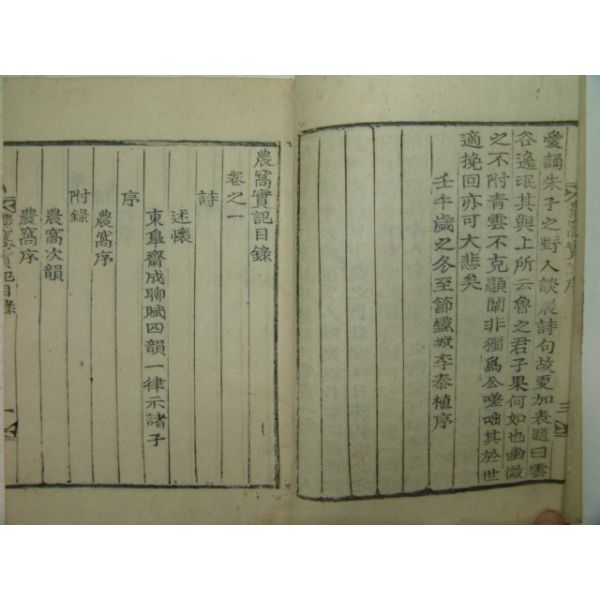 愛誦朱子之野人談農詩句故更加表題曰雲
谷逸氓其與上所云魯之君子果何如也幽微
之不附青雲不克顯闡非獨爲公嗟咄其於世
適挽回亦可大悲矣
壬午歲之冬至節鐵城李泰植序
農窩實記目錄
卷之一
詩
述懷
東皐齋成聊賦四韻一律示諸子
序
農窩序
附錄
農窩次韻
農窩序
農窩實記目錄